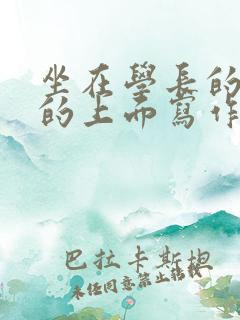 坐在學長的
的上面寫作
巴拉卡斯搃
未經同意禁止轉載